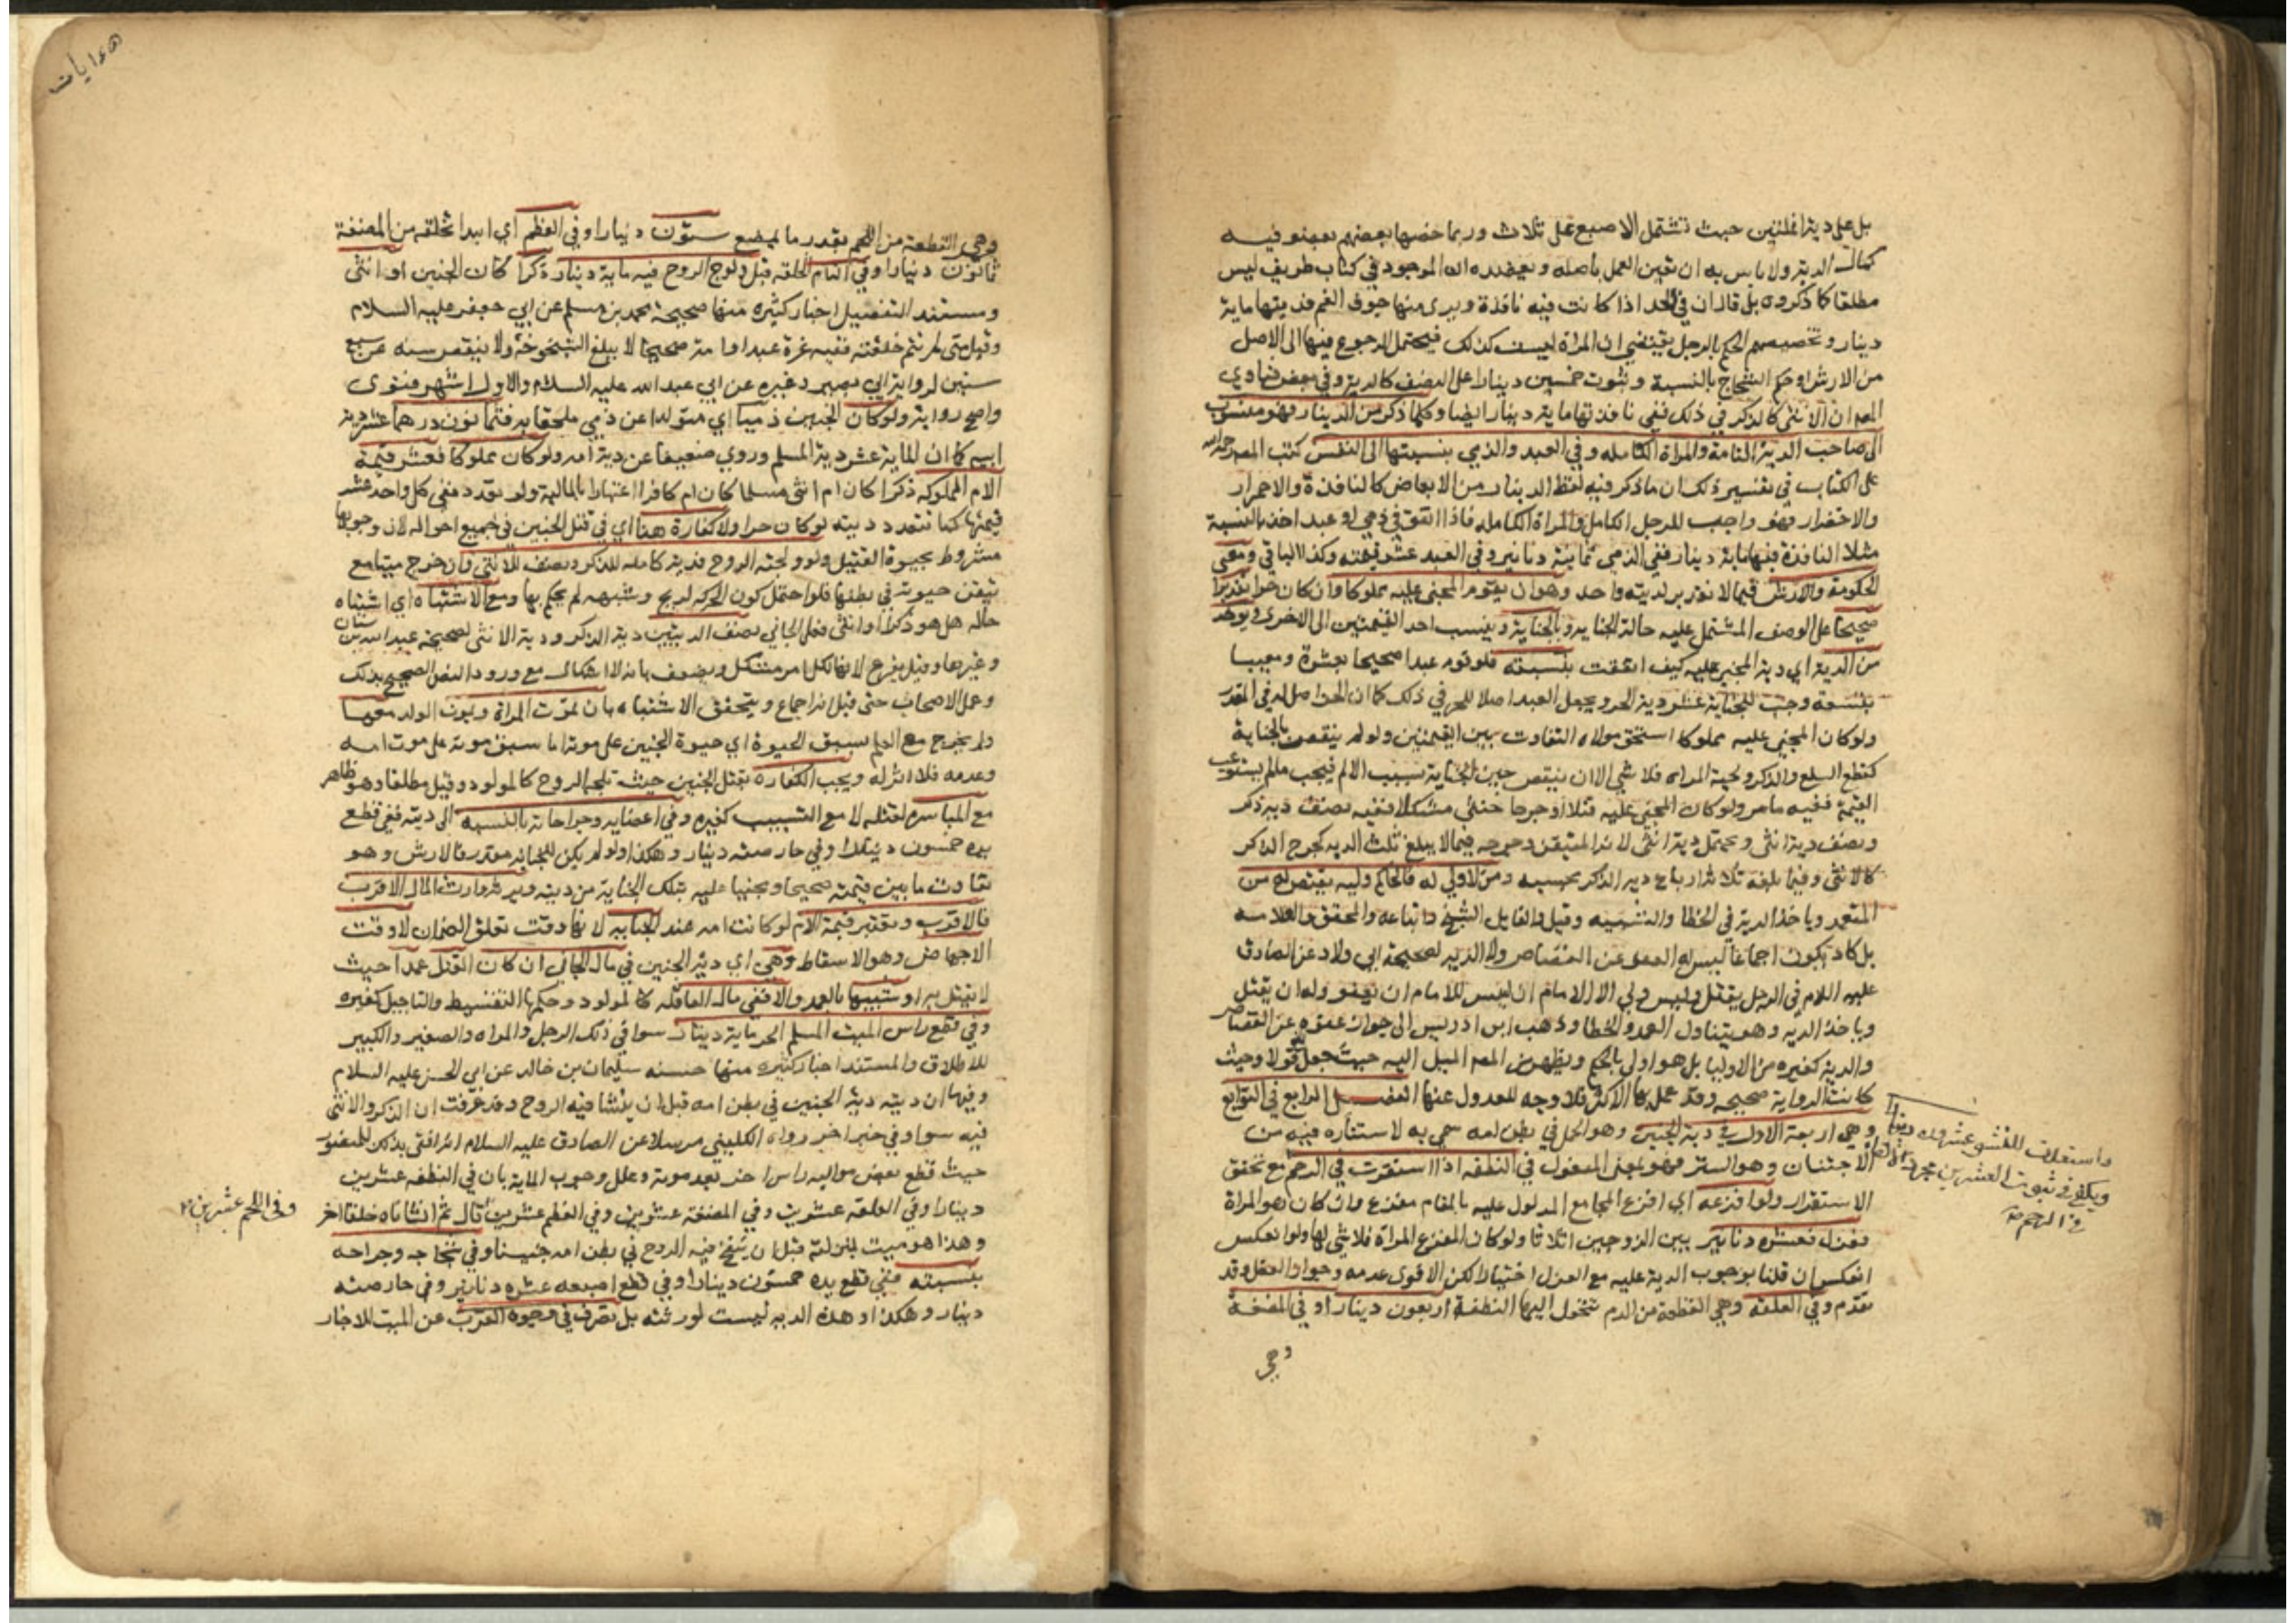 بل على دية اثنتين حيث تشتمل الاصبع على ثلاث وربما خصها بعضهم بعضو فيه
كمال الدية ولا باس به ان تعين العمل باصله ويعضده ان الموجود في كتاب ظريف ليس
مطلقا كما ذكروه بل قال ان في الخد اذا كانت فيه نافذة ويرى منها جوف الفم فديتها ماية
دينار وتخصيصهم الحكم بالرجل يقتضي ان المراة ليست كذلك فيحتمل الرجوع فيها الى الاصل
من الارش او حكم الشجاج بالنسبة وثبوت خمسين دينارا على النصف كالدية وفي بعض فتاوي
المص ان الانثى كالذكر في ذلك ففي نافذتها ماية دينار ايضا وكلما ذكر من الدينار فهو منسوب
الى صاحب الدية التامة والمراة الكاملة وفي العبد والذمي بنسبتها الى النفس كتب المص رحمه الله
على الكتاب في تفسير ذلك ان ما ذكر فيه لفظ الدينار من الابعاض كالنافذة والاحمرار
والاخضرار فهو واجب للرجل الكامل والمراة الكاملة فاذا اتفق في ذمي او عبد اخذ بالنسبة
مثلا النافذة فيها ماية دينار ففي الذمي ثمانية دنانير وفي العبد عشر قيمته وكذا الباقي ومعنى
الحكومة والارش فيما لا تقدير لديته واحد وهو ان يقوم المجني عليه مملوكا وان كان حرا تقديرا
صحيحا على الوصف المشتمل عليه حالة الجناية وبالجناية وينسب احد القيمتين الى الاخرى ويوخذ
من الدية اي دية المجني عليه كيف اتفقت بنسبته فلو قوم عبدا صحيحا بعشرة ومعيبا
بتسعة وجب للجناية عشر دية الحر ويجعل العبد اصلا للحر في ذلك كما ان الحر اصل له في المقدر
ولو كان المجني عليه مملوكا استحق مولاه التفاوت بين القيمتين ولو لم ينقص بالجناية
كقطع السلع والذكر ولحية المراة فلا شي الا ان ينقص حين الجناية بسبب الالم فيجب ما لم يستوعب
القيمة ففيه ما مر ولو كان المجني عليه قتلا او جرحا خنثى مشكلا ففيه نصف دية ذكر
ونصف دية انثى ويحتمل دية انثى لانه المتيقن وجرحه فيما لا يبلغ ثلث الدية كجرح الذكر
كالانثى وفيما بلغه ثلاثة ارباع دية الذكر بحسبه ومن لا ولي له فالحاكم وليه يقتص له من
المتعمد وياخذ الدية في الخطا والشبيه وقيل والقايل الشيخ واتباعه والمحقق والعلامه
بل كاد يكون اجماعا ليس له العفو عن القصاص ولا الدية لصحيحة ابي ولاد عن الصادق
عليه السلام في الرجل يقتل وليس له ولي الا الامام انه ليس للامام ان يعفو وله ان يقتل
وياخذ الدية وهو يتناول العمد والخطا وذهب ابن ادريس الى جواز عفوه عن القصاص
والدية كغيره من الاوليا بل هو اولى بالحكم ويظهر من المص الميل اليه حيث جعله قولا وحيث
كانت الرواية صحيحه وقد عمل بها الاكثر فلا وجه للعدول عنها الفصل الرابع في التوابع
وهي اربعة الاول في دية الجنين وهو الحمل في بطن امه سمي به لاستتاره فيه من
الاجتنان وهو الستر فهو بمعنى المفعول في النطفة اذا استقرت في الرحم مع تحقق
الاستقرار ولو افزعه اي افزع المجامع المدلول عليه بالمقام مفزع وان كان هو المراة
فعزل فعشرة دنانير بين الزوجين اثلاثا ولو كان المفزع المراة فلا شي لها ولو انعكس
انعكس ان قلنا بوجوب الدية عليه مع العزل اختيارا لكن الاقوى عدمه وجواز العزل وقد
تقدم وفي العلقة وهي القطعة من الدم تتحول اليها النطفة اربعون دينارا وفي المضغة
وهي
عشرون دينارا
ويكفي في ثبوت العشرين مجرد
في الرحم
وهي القطعة من اللحم بقدر ما يمضغ ستون دينارا وفي العظم اي ابتدا تخلقه من المضغة
ثمانون دينارا وفي التام الخلقه قبل ولوج الروح فيه ماية دينار ذكرا كان الجنين او انثى
ومستند التفصيل اخبار كثيره منها صحيحة محمد بن مسلم عن ابي جعفر عليه السلام
وقيل متى لم تتم خلقته ففيه غرة عبد او امة صحيحا لا يبلغ الشيخوخة ولا ينقص سنه عن سبع
سنين لرواية ابي بصير وغيره عن ابي عبد الله عليه السلام والاول اشهر فتوى
واصح رواية ولو كان الجنين ذميا اي متولدا عن ذمي ملحقا به فثمانون درهما عشر دية
ابيه كما ان الماية عشر دية المسلم وروي ضعيفا عشر دية امه ولو كان مملوكا فعشر قيمة
الام المملوكه ذكرا كان ام انثى مسلما كان ام كافرا اعتبارا بالمالية ولو تعدد ففي كل واحد عشر
قيمتها كما تتعدد ديته لو كان حرا ولا كفارة هنا اي في قتل الجنين في جميع احواله لان وجوبها
مشروط بحيوة القتيل ولو ولجته الروح فدية كاملة للذكر ونصف للانثى وان خرج ميتا مع
تيقن حيوته في بطنها فلو احتمل كون الحركة لريح وشبهه لم يحكم بها ومع الاشتباه اي اشتباه
حاله هل هو ذكر او انثى فعلى الجاني نصف الديتين دية الذكر ودية الانثى لصحيحة عبد الله بن سنان
وغيرها وقيل يقرع لانها لكل امر مشكل ويضعف بانه لا اشكال مع ورود النص الصحيح بذلك
وعمل الاصحاب حتى قيل انه اجماع ويتحقق الاشتباه بان تموت المراة ويموت الولد معها
ولم يخرج مع العلم بسبق الحيوة اي حيوة الجنين على موته اما سبق موته على موت امه
وعدمه فلا اثر له ويجب الكفارة بقتل الجنين حيث تلجه الروح كالمولود وقيل مطلقا وهو ظاهر
مع المباشره لقتله لا مع التسبيب كغيره وفي اعضايه وجراحاته بالنسبه الى ديته ففي قطع
يده خمسون دينارا وفي حارصته دينار وهكذا ولو لم يكن للجناية مقدر فالارش وهو
تفاوت ما بين قيمته صحيحا ومجنيا عليه بتلك الجناية من ديته ويرثه وارث المال الاقرب
فالاقرب وتعتبر قيمة الام لو كانت امه عند الجناية لانها وقت تعلق الضمان لا وقت
الاجهاض وهو الاسقاط وهي اي دية الجنين في مال الجاني ان كان القتل عمدا حيث
لا يقتل به او شبيها بالعمد والا ففي مال العاقلة كالمولود وحكمها التقسيط والتاجيل كغيره
وفي قطع راس الميت المسلم الحر ماية دينار سوا في ذلك الرجل والمراه والصغير والكبير
للاطلاق والمستند اخبار كثيره منها حسنه سليمان بن خالد عن ابي الحسن عليه السلام
وفيها ان ديته دية الجنين في بطن امه قبل ان ينشا فيه الروح وقد عرفت ان الذكر والانثى
فيه سوا وفي خبر اخر رواه الكليني مرسلا عن الصادق عليه السلام انه افتى بذلك للمنصور
حيث قطع بعض مواليه راس اخر بعد موته وعلل وجوب الماية بان في النطفه عشرين
دينارا وفي العلقه عشرين وفي المضغة عشرين وفي العظم عشرين قال ثم انشاناه خلقا اخر
وهذا هو ميت بمنزلته قبل ان ينفخ فيه الروح في بطن امه جنينا وفي شجاجه وجراحه
بنسبته ففي قطع يده خمسون دينارا وفي قطع اصبعه عشره دنانير وفي حارصته
دينار وهكذا وهذه الدية ليست لورثته بل تصرف في وجوه القرب عن الميت للاخبار
وفي اللحم عشرين